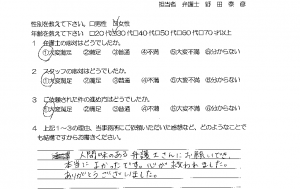 担当者　弁護士　野田 泰彦
性別を教えて下さい。□男性　☑女性
年齢を教えて下さい。□20代 □30代 □40代 □50代 □60代 □70才以上
1　弁護士の応対はどうでしたか。
①大変満足　②満足　③普通　④不満　⑤大変不満　⑥分からない
2　スタッフの応対はどうでしたか。
①大変満足　②満足　③普通　④不満　⑤大変不満　⑥分からない
3　ご依頼された件の進め方はどうでしたか。
①大変満足　②満足　③普通　④不満　⑤大変不満　⑥分からない
4　上記1～3の理由、当事務所にご依頼いただいた感想など、どのようなことで
も結構ですからお書きください。
人間味のある弁護士さんにお願いでき、
本当によかったです。心が救われました。
ありがとうございました。